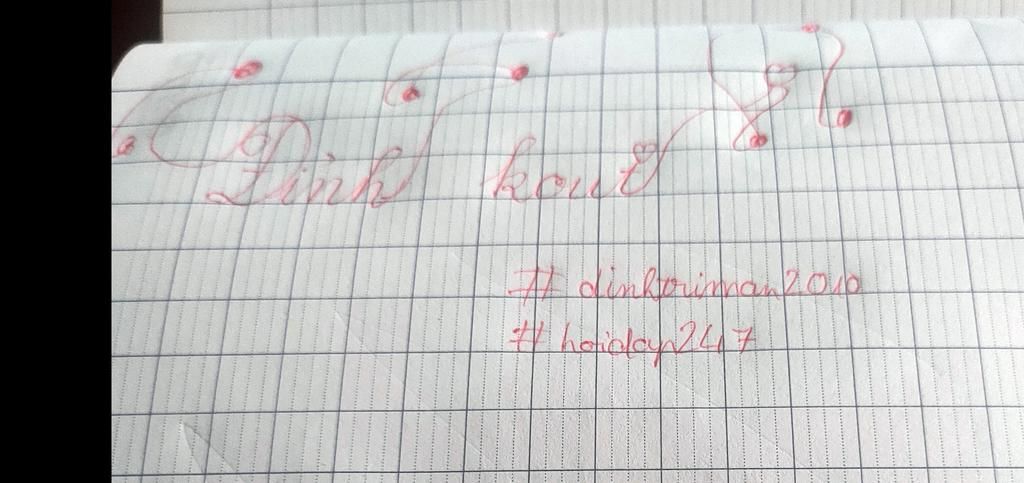 Dink kout
#dinkpriman2010
#hoiday247